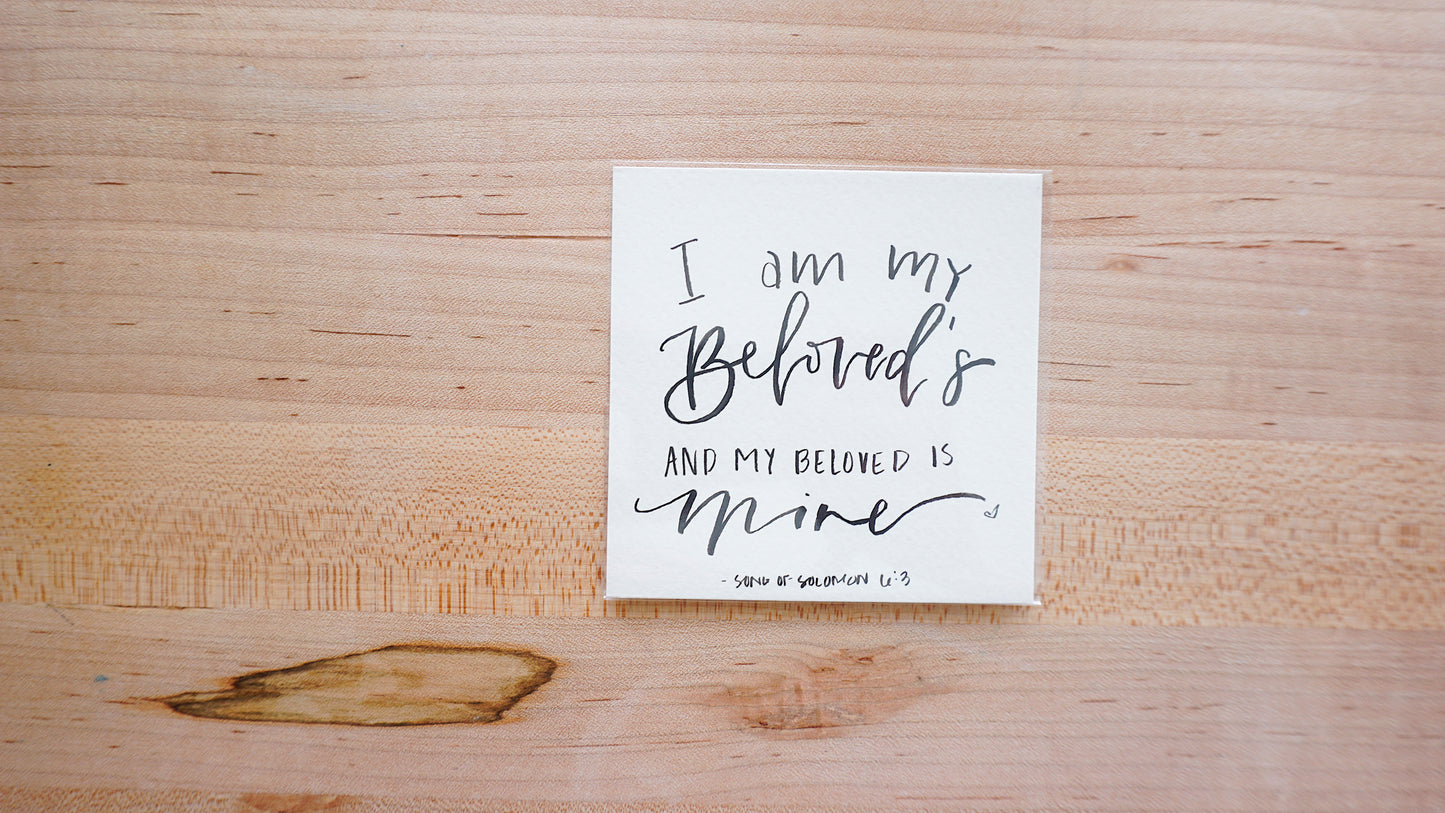 I am my
Beloved's
AND MY BELOVED IS
mine
- SONG OF SOLOMON 6:3